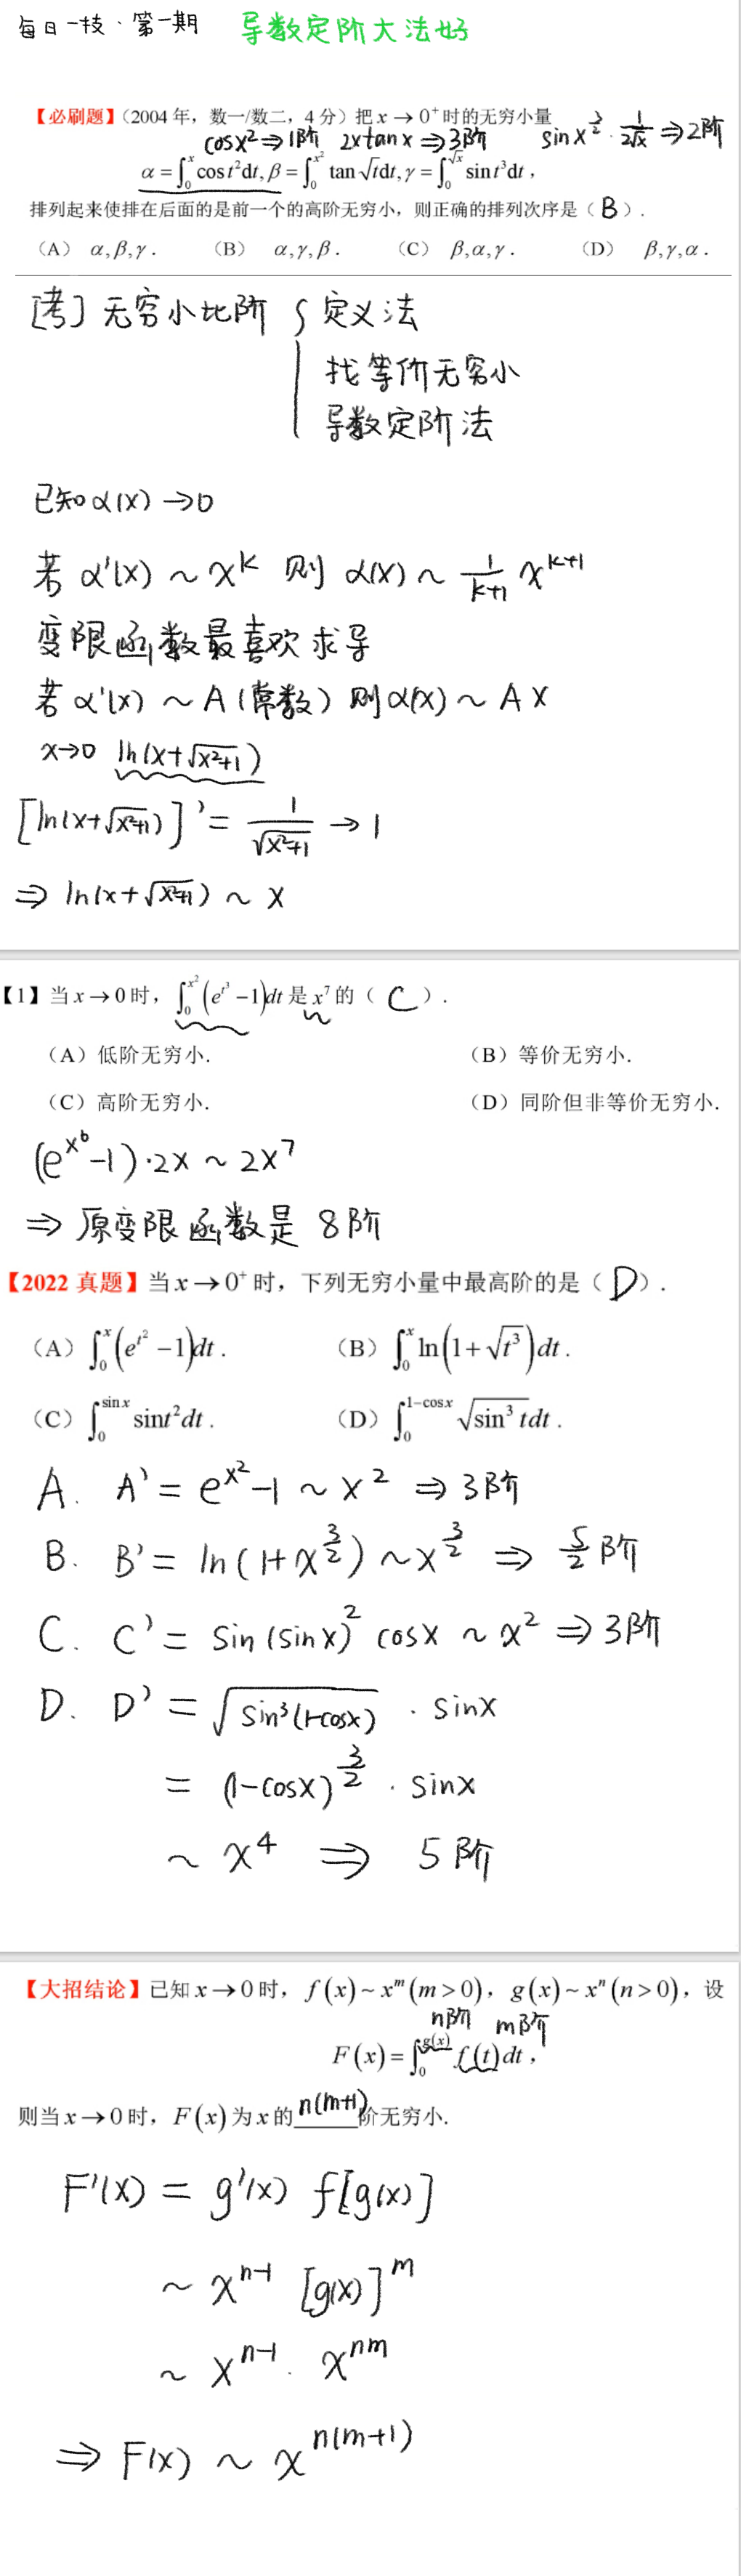 每日一技、第一期 导数定阶大法好
【必刷题】(2004 年，数一/数二，4 分) 把 x → 0⁺ 时的无穷小量
cosx² ⇒ 1阶 2xtanx ⇒ 3阶 sinx^(3/2) · 1/(2√x) ⇒ 2阶
α = ∫₀^x cos t²dt, β = ∫₀^(x²) tan √t dt, γ = ∫₀^(√x) sin t³dt ,
排列起来使排在后面的是前一个的高阶无穷小，则正确的排列次序是（ B ）.
（A） α, β, γ . （B） α, γ, β . （C） β, α, γ . （D） β, γ, α .
[考] 无穷小比阶 { 定义法
找等价无穷小
导数定阶法
已知 α(x) → 0
若 α'(x) ~ x^k 则 α(x) ~ 1/(k+1) x^(k+1)
变限函数最喜欢求导
若 α'(x) ~ A (常数) 则 α(x) ~ Ax
x→0 ln(x+√(x²+1))
[ln(x+√(x²+1))]' = 1/√(x²+1) → 1
⇒ ln(x+√(x²+1)) ~ x
【1】当 x → 0 时， ∫₀^(x²) (e^(t³) − 1)dt 是 x⁷ 的（ C ）.
（A）低阶无穷小. （B）等价无穷小.
（C）高阶无穷小. （D）同阶但非等价无穷小.
(e^(x⁶) − 1)·2x ~ 2x⁷
⇒ 原变限函数是 8阶
【2022 真题】当 x → 0⁺ 时，下列无穷小量中最高阶的是（ D ）.
（A） ∫₀^x (e^(t²) − 1)dt . （B） ∫₀^x ln(1 + √(t³))dt .
（C） ∫₀^(sin x) sin t²dt . （D） ∫₀^(1−cos x) √(sin³ t)dt .
A. A' = e^(x²) − 1 ~ x² ⇒ 3阶
B. B' = ln(1+x^(3/2)) ~ x^(3/2) ⇒ 5/2 阶
C. C' = sin(sinx)² cosx ~ x² ⇒ 3阶
D. D' = √(sin³(1-cosx)) · sinx
= (1-cosx)^(3/2) · sinx
~ x⁴ ⇒ 5阶
【大招结论】已知 x → 0 时， f(x) ~ x^m (m > 0)， g(x) ~ x^n (n > 0)，设
n阶 m阶
F(x) = ∫₀^(g(x)) f(t)dt ,
则当 x → 0 时， F(x) 为 x 的 n(m+1) 阶无穷小.
F'(x) = g'(x) f[g(x)]
~ x^(n-1) [g(x)]^m
~ x^(n-1) · x^(nm)
⇒ F(x) ~ x^(n(m+1))